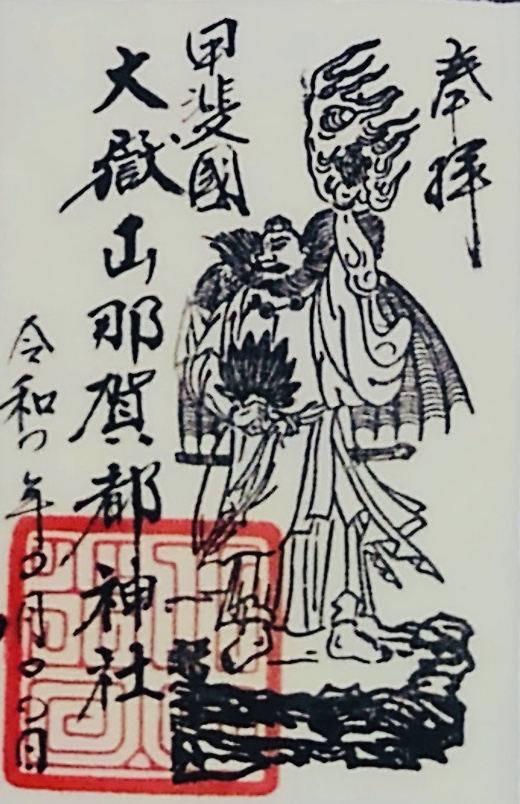 奉拝
甲斐國
大嶽山那賀都神社
令和 年 月 日